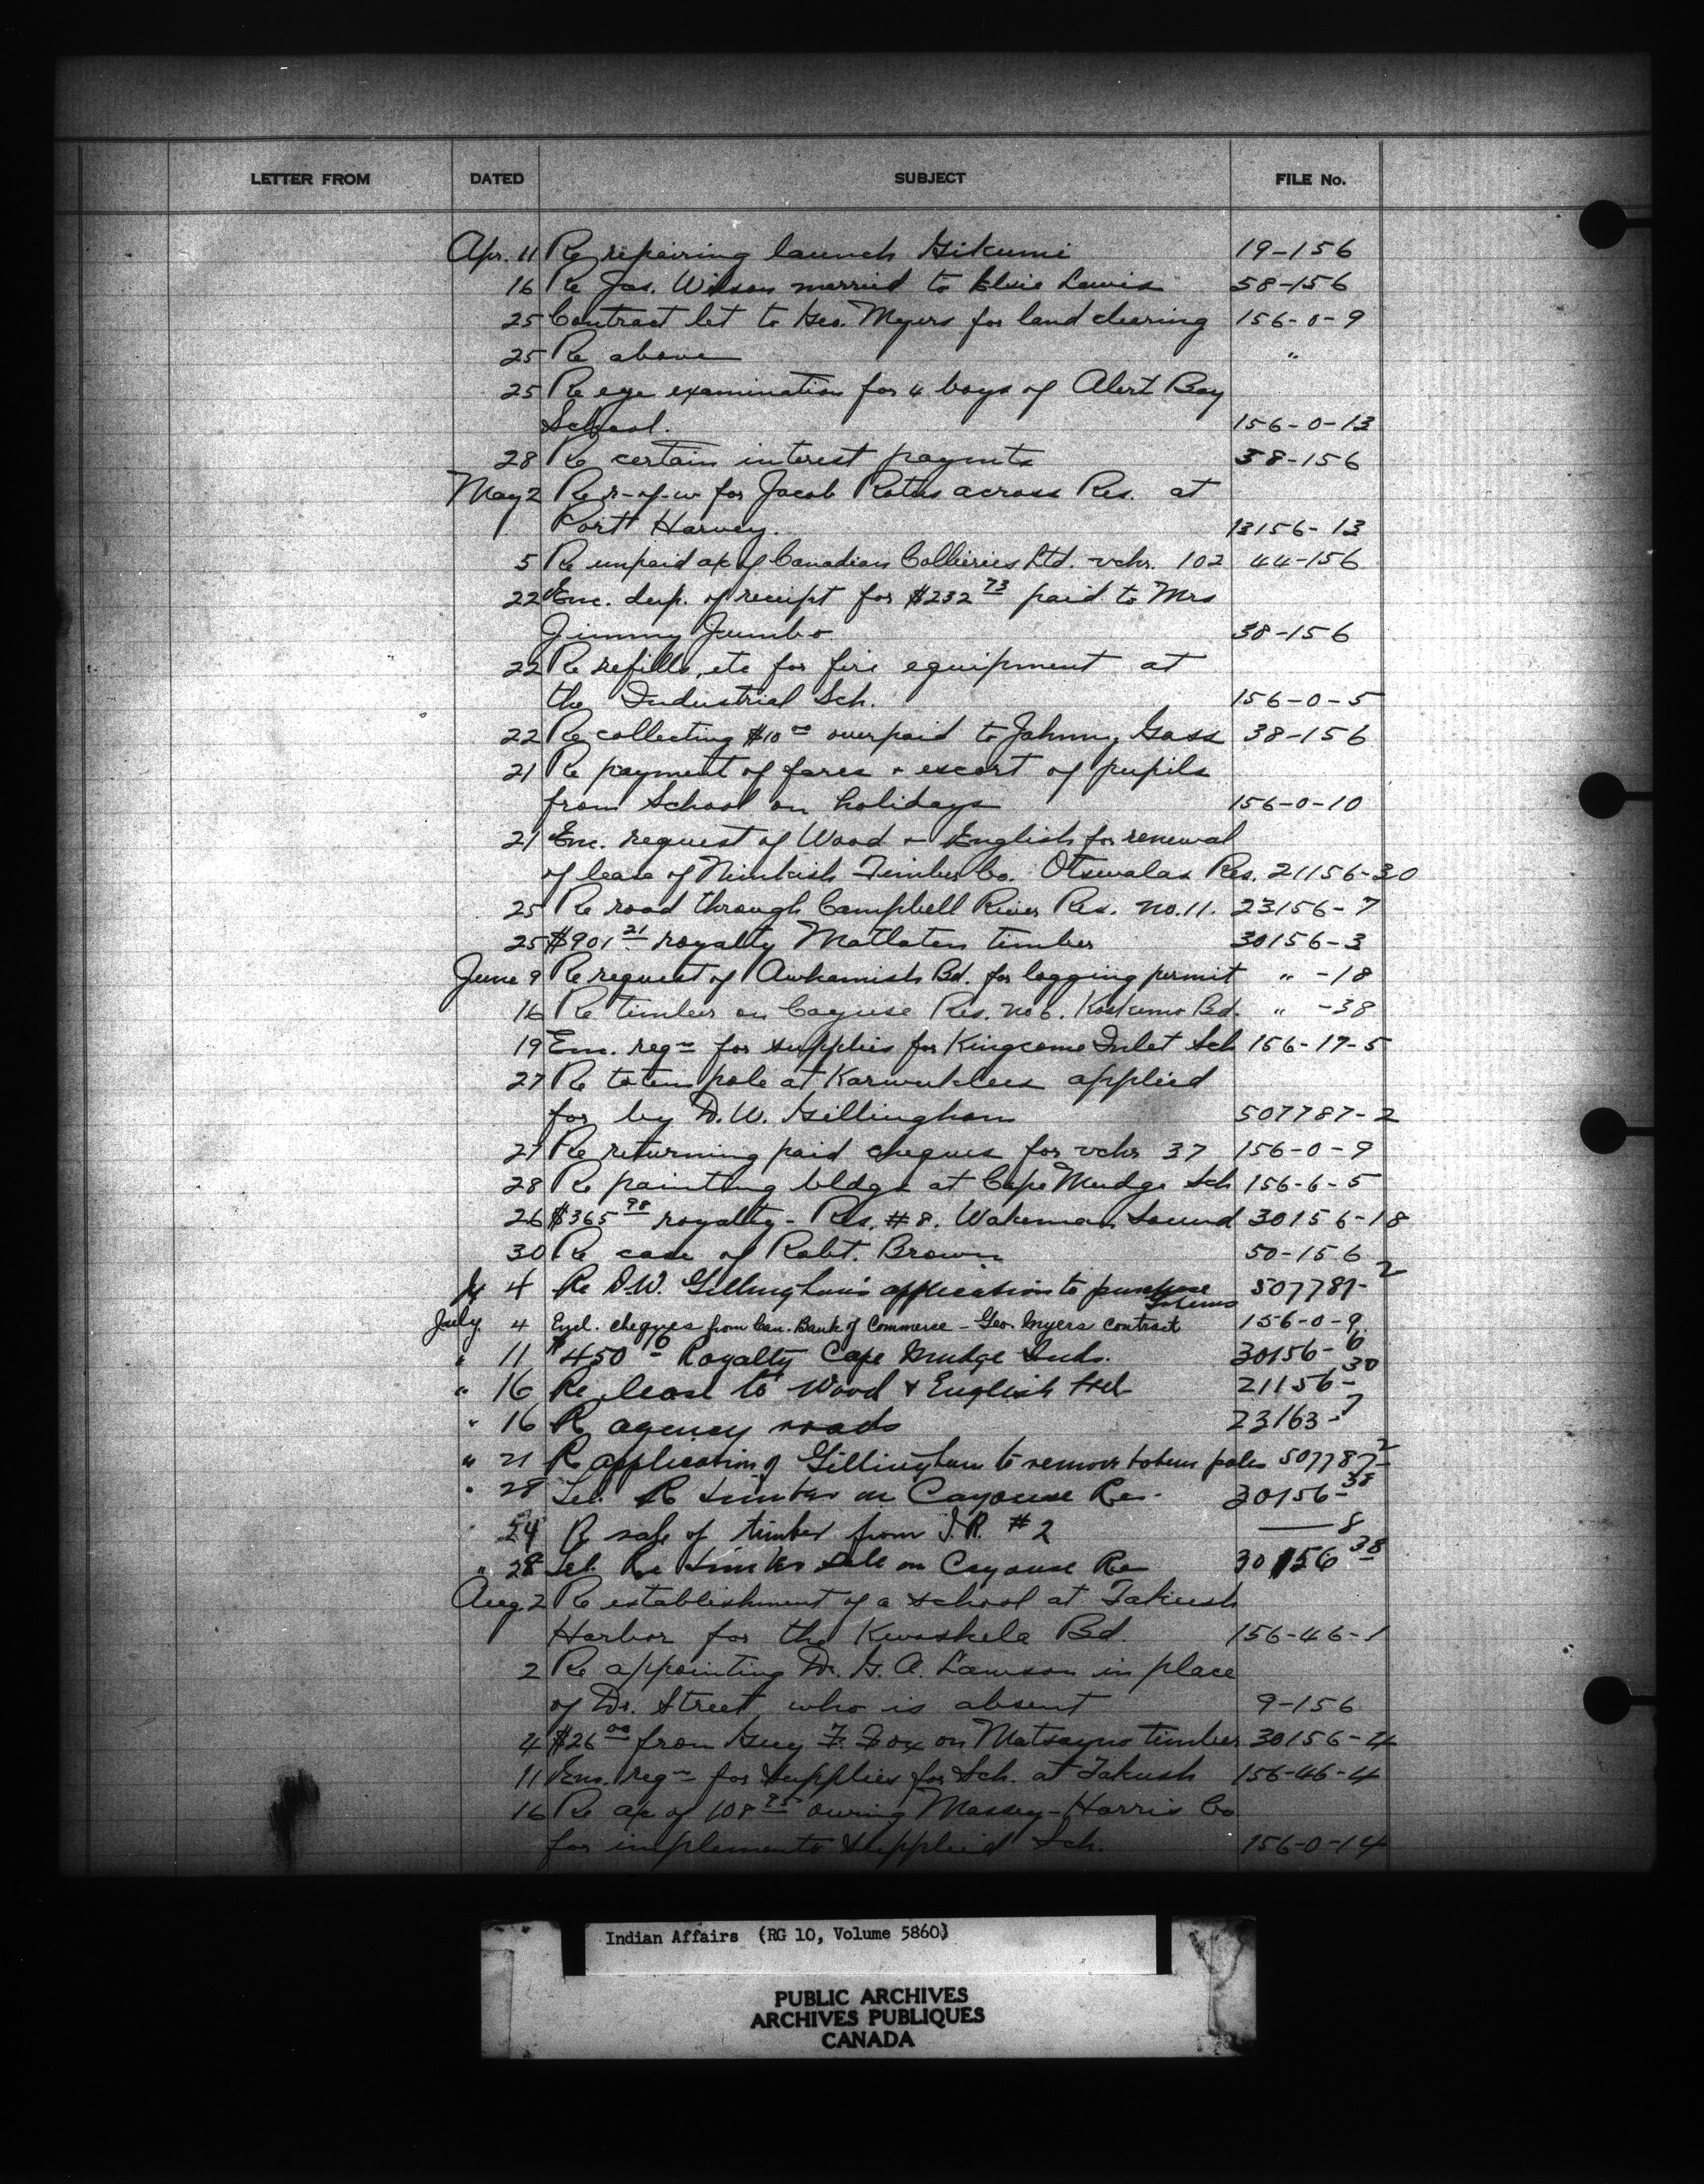 LETTER FROM DATED SUBJECT FILE No.
Apr. 11 Re repairing launch Gikumi 19-156
16 Re Jas. Wilson married to Elsie Lewis 58-156
25 Contract let to Geo. Myers for land clearing 156-0-9
25 Re above "
25 Re eye examination for 4 boys of Alert Bay
School. 156-0-13
28 Re certain interest paymts 38-156
May 2 Re r-of-w for Jacob across Res. at
Port Harvey. 13156-13
5 Re unpaid a/c of Canadian Collieries Ltd. vchr. 102 44-156
22 Enc. dup. of receipt for $232 73 paid to Mrs
Jimmy Jumbo 38-156
22 Re refills, etc for fire equipment at
the Industrial Sch. 156-0-5
22 Re collecting $10 00 overpaid to Johnny Gass 38-156
21 Re payment of fares + escort of pupils
from School on holidays 156-0-10
21 Enc. request of Wood + English for renewal
of lease of Nimkish Timber Co. Otsewalas Res. 21156-30
25 Re road through Campbell River Res. No. 11. 23156-7
25 $901 21 royalty Matlaten timber 30156-3
June 9 Re request of Awkamish Bd. for logging permit " -18
16 Re timber on Cayuse Res. No 6. Koskemo Bd. " -38
19 Enc. reqn for supplies for Kingcome Inlet Sch 156-17-5
27 Re totem pole at applied
for by D. W. Gillingham 507787-2
27 Re returning paid cheques for vchr 37 156-0-9
28 Re painting bldgs at Cape Mudge Sch 156-6-5
26 $365 98 royalty - Res. #8. Wakeman Sound 30156-18
30 Re case of Robt. Brown 50-156
4 Re D.W. Gillingham's application to purchase 507787-2
totems
July 4 Encl. cheques from Can. Bank of Commerce - Geo. Myers contract 156-0-9
" 11 $450 10 Royalty Cape Mudge Inds. 30156-6
" 16 Re lease to Wood & English Ltd 21156-30
" 16 Re agency roads 23163-7
" 21 Re application of Gillingham to remove totem poles 507787-2
" 28 Tel. Re timber on Cayouse Res. 30156-38
24 Re sale of timber from I.R. #2 — 8
" 28 Tel. Re timber sale on Cayouse Re 30156 38
Aug. 2 Re establishment of a school at Takush
Harbor for the Kwashela Bd. 156-46-1
2 Re appointing Dr. G. A. Lawson in place
of Dr. Street who is absent 9-156
4 $26 00 from Guy F. Fox on Matsayno timber 30156-4
11 Enc. reqn for supplies for Sch. at Takush 156-46-4
16 Re a/c of 108 95 owing Massey-Harris Co
for implements supplied Sch. 156-0-14
Indian Affairs (RG 10, Volume 5860)
PUBLIC ARCHIVES
ARCHIVES PUBLIQUES
CANADA